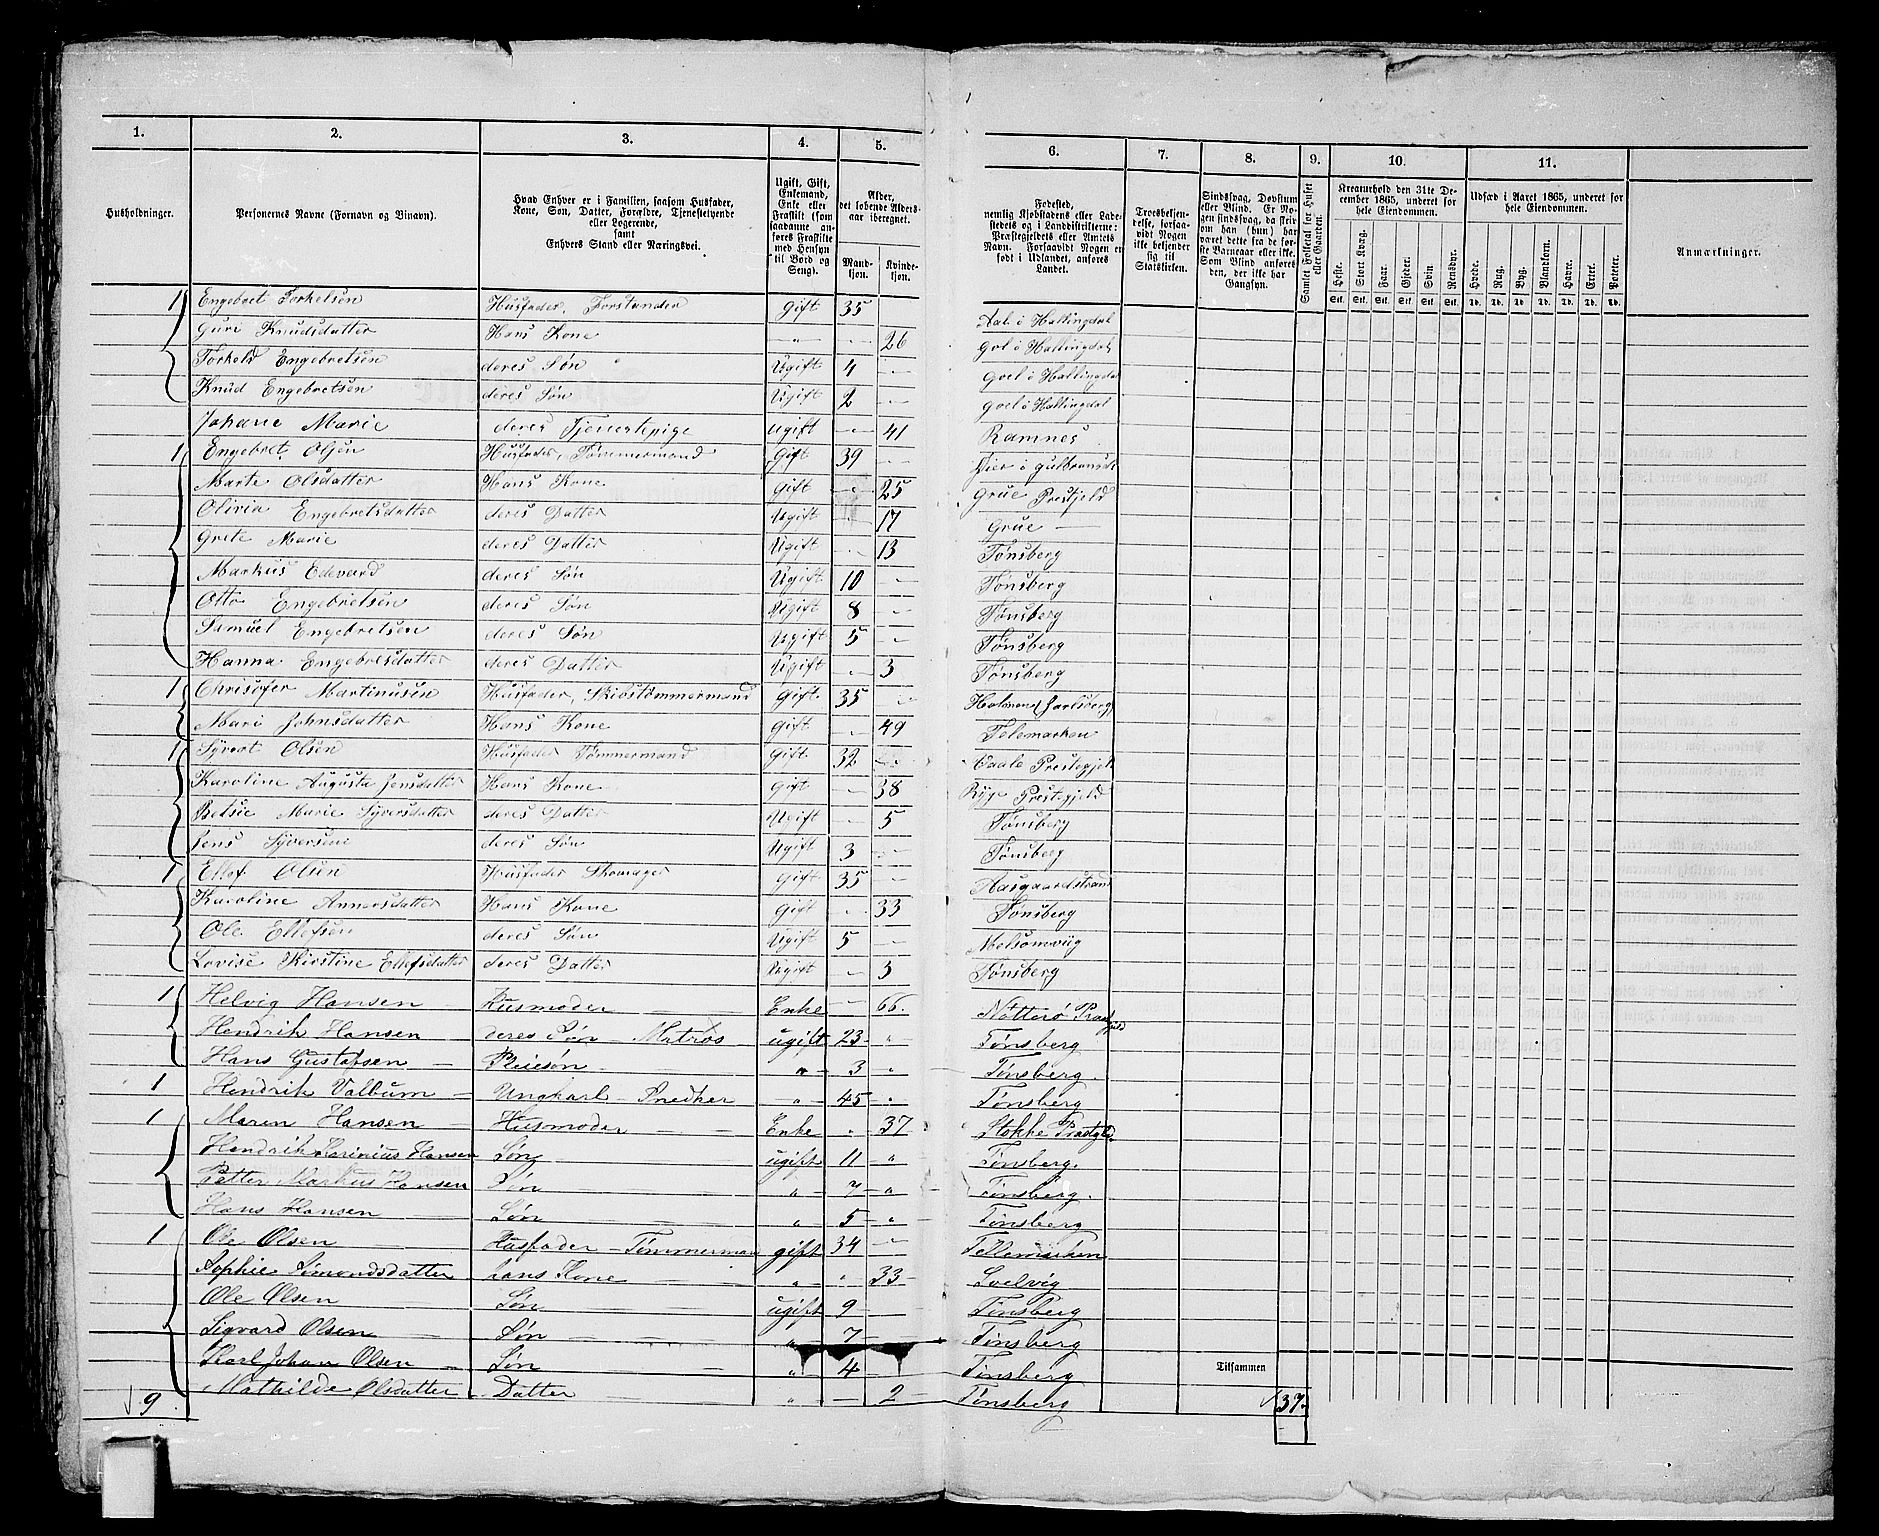 1. 2. 3. 4. 5. 6. 7. 8. 9. 10. 11.
Husholdninger.
Personernes Navne (Fornavn og Binavn).
Hvad Enhver er i Familien, saasom Husfader,
Kone, Søn, Datter, Forældre, Tjenestetyende
eller Logerende,
samt
Enhvers Stand eller Næringsvei.
Ugift, Gift,
Enkemand,
Enke eller
Fraskilt (som
saadanne an-
føres Fraskilte
med Hensyn
til Bord og
Seng).
Alder,
det løbende Alders-
aar iberegnet.
Mand-
kjøn.
Kvinde-
kjøn.
Fødested,
nemlig Kjøbstadens eller Lade-
stedets og i Landdistrikterne:
Præstegjeldets eller Amtets
Navn. Forsaavidt Nogen er
født i Udlandet, anføres
Landet.
Troesbekjen-
delse, forsaa-
vidt Nogen
ikke bekjender
sig til
Statskirken.
Sindssvag, Døvstum
eller Blind. Er No-
gen sindssvag, da skri-
ves om han (hun) har
været dette fra de før-
ste Barneaar eller ikke.
Som Blind anføres
den, der ikke har
Gangsyn.
Samlet Folketal for Huset
eller Gaarden.
Kreaturhold den 31te De-
cember 1865, underet for
hele Eiendommen.
Heste. Stort Kvæg. Faar. Gjeder. Svin Rensdyr.
Stk. Stk. Stk. Stk. Stk. Stk.
Udsæd i Aaret 1865, underet for
hele Eiendommen.
Hvede. Rug. Byg. Blandkorn. Havre. Erter. Poteter.
Td. Td. Td. Td. Td. Td. Td.
Anmærkninger.
1 Engebret Torkelsen Husfader, Forstander Gift 35 Aal i Hallingdal
Guri Knudsdatter Hans Kone " 26 Gol i Hallingdal
Torkeld Engebretsen deres Søn Ugift 4 Goel i Hallingdal
Knud Engebretsen deres Søn Ugift 2 Goel i Hallingdal
Johane Marie deres Tjenestepige Ugift 41 Ramnes
1 Engebret Olsen Husfader, Tømmermand Gift 39 Øier i Gulbransd
Marte Olsdatter Hans Kone Gift 25 Grue Prestjeld
Olivia Engebretsdatter deres Datter Ugift 17 Grue
Grete Marie deres Datter Ugift 13 Tønsberg
Markus Edevard deres Søn Ugift 10 Tønsberg
Otto Engebretsen deres Søn Ugift 8 Tønsberg
Samuel Engebretsen deres Søn Ugift 5 Tønsberg
Hanna Engebresdatter deres Datter Ugift 3 Tønsberg
1 Chrisofer Martinusen Husfader, Skibstømmermand Gift 35 Holmen Jarlsberg
Mari Johnsdatter Hans Kone Gift 49 Telemarken
1 Syvert Olsen Husfader Tømmermand Gift 32 Vaale Prestegjel
Karoline Augusta Jensdatter Hans Kone Gift 38 Ryge Prestegjeld
Betsie Marie Syversdatter deres Datter Ugift 5 Tønsberg
Jens Syversen deres Søn Ugift 3 Tønsberg
1 Ellef Olsen Husfader Skomager Gift 35 Aasgaardstrand
Karoline Annersdatter Hans Kone Gift 33 Tønsberg
Ole Ellefsen deres Søn Ugift 5 Melsomviig
Lovise Kirstine Ellefsdatter deres Datter Ugift 3 Tønsberg
1 Helvig Hansen Husmoder Enke 66. Nøtterø Præstgjeld
Hendrik Hansen deres Søn Matros ugift 23 " Tønsberg
Hans Gustafsen Pleiesøn " 3 " Tønsberg.
1 Hendrik Valbum Ungkarl Snedker " 45 " Tønsberg
1 Maren Hansen Husmoder Enke " 37 Stokke Præstgjld
Hendrik Hansen Søn ugift 11 " Tønsberg.
Petter Markus Hansen Søn " 7 " Tønsberg.
Hans Hansen Søn " 5 " Tønsberg
1 Ole Olsen Husfader Tømmerman gift 34 Tellemarken
Sophie Simondsdatter hans Kone " " 33 Svelvig
Ole Olsen Søn ugift 9 Tønsberg
Sigvard Olsen Søn " 7 Tønsberg
Karl Johan Olsen Søn " 4 Tønsberg
Tilsammen
9 Mathilde Olsdatter Datter " 2 Tønsberg 37.